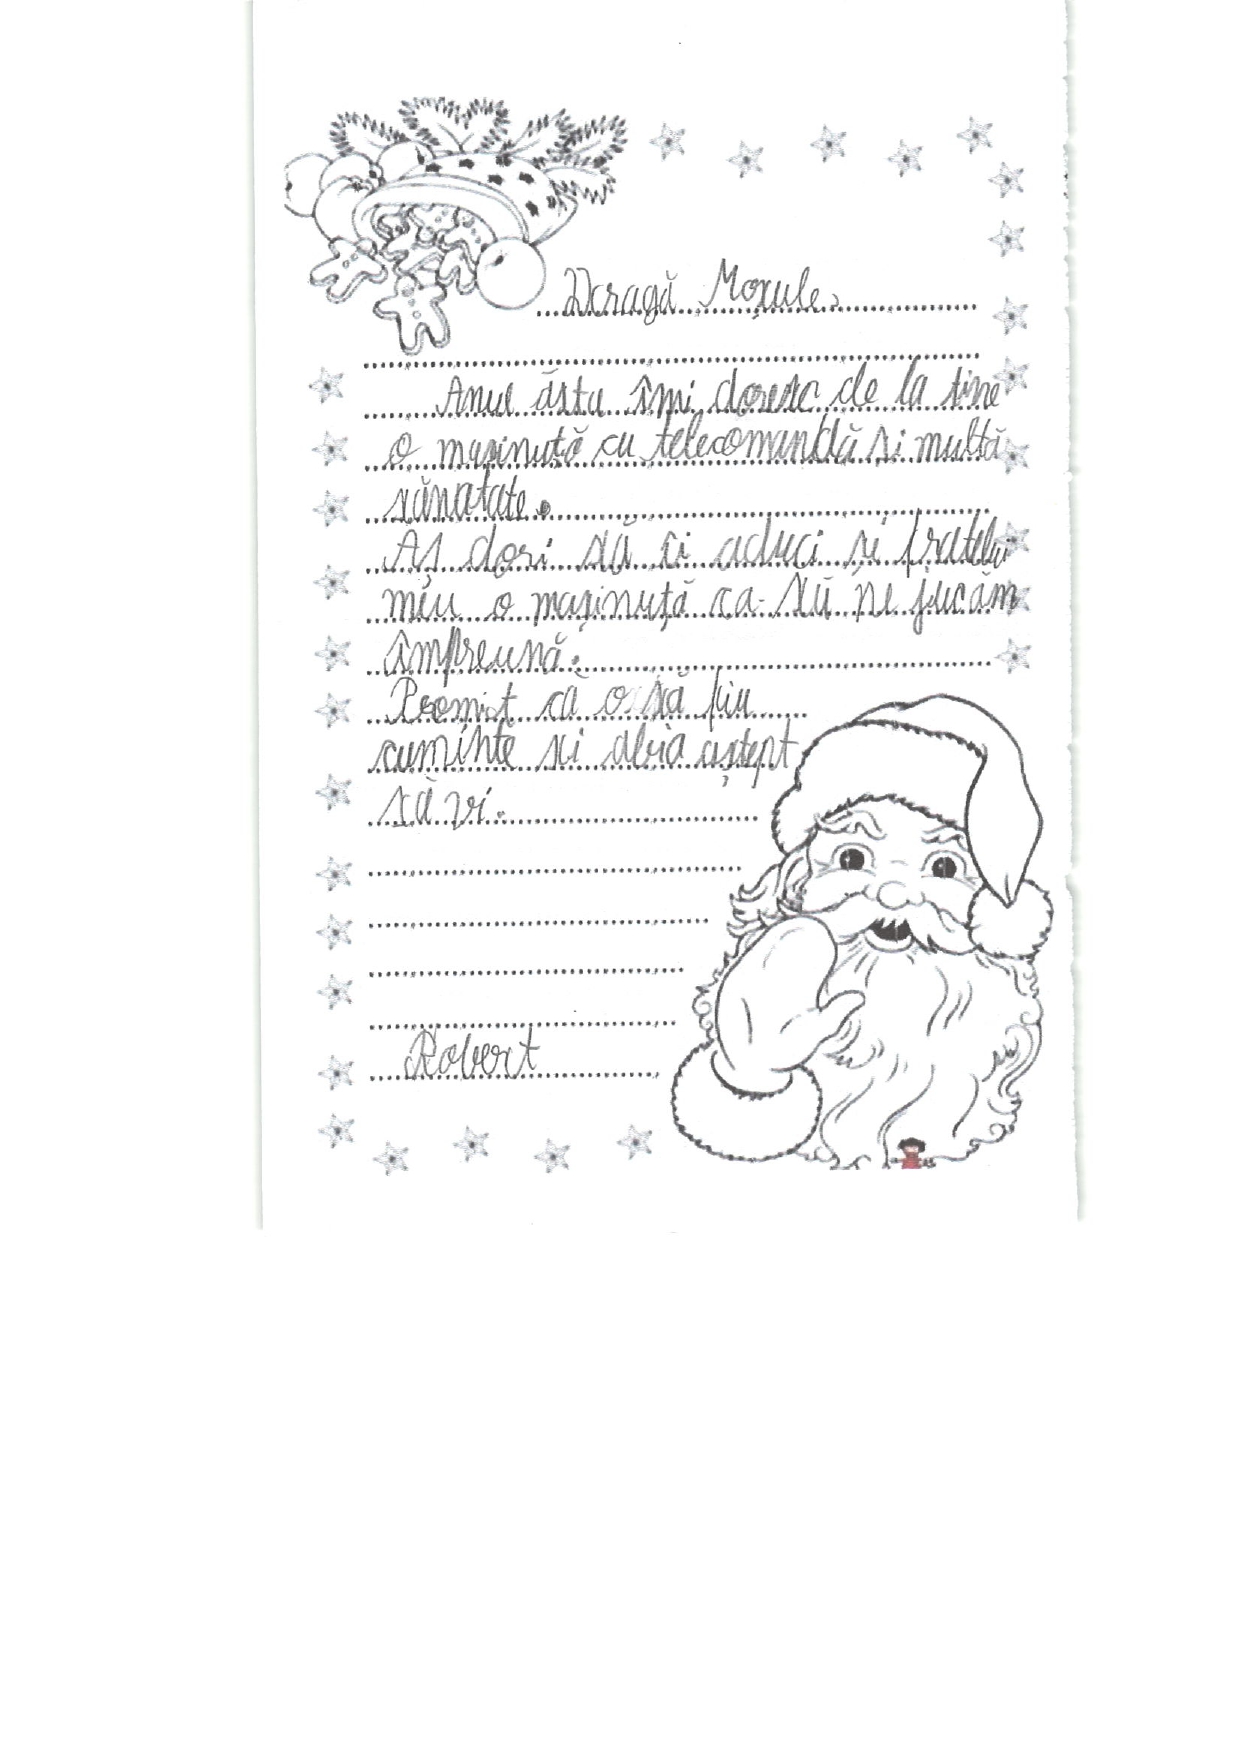 Dragă Moșule,
Anul ăsta îmi doresc de la tine
o mașinuță cu telecomandă si multă
sănatate.
Aș dori să îi aduci si fratelui
meu o mașinuță ca să ne jucăm
împreună.
Promit că o să fiu
cuminte si abia aștept
să vi.
Robert